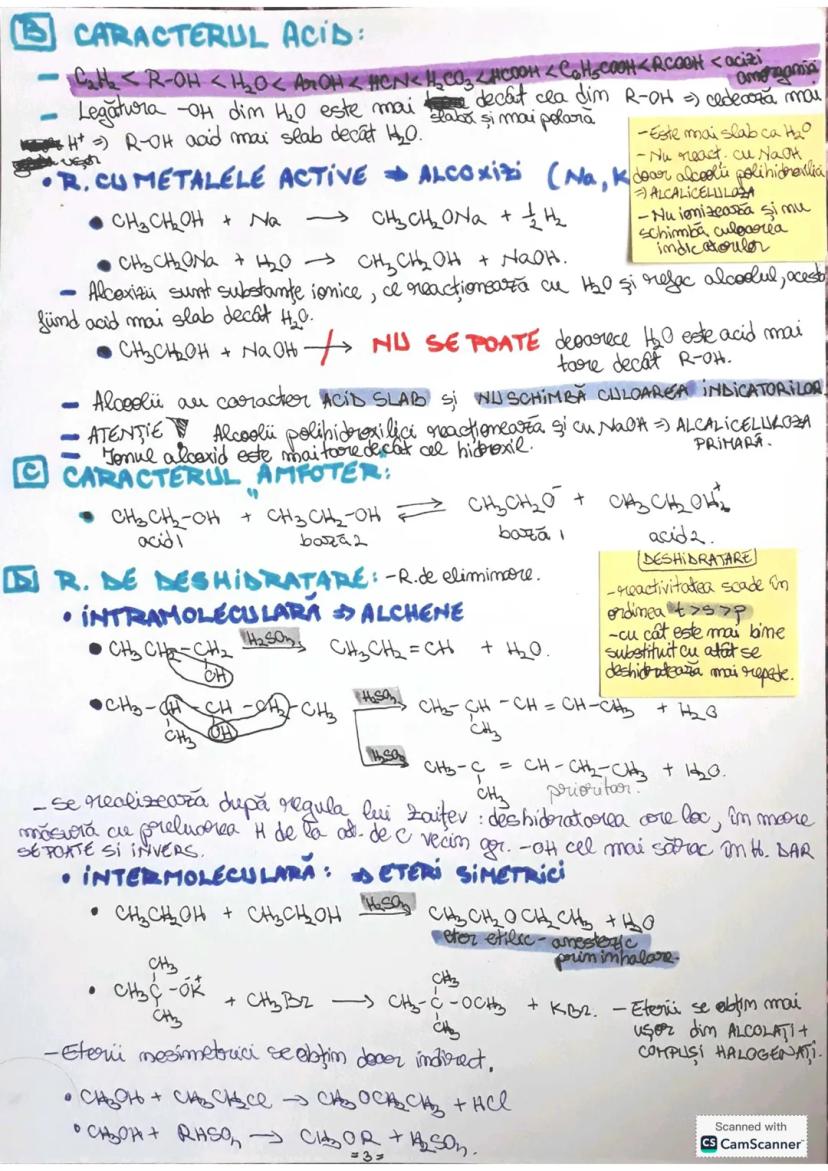 B CARACTERUL ACID:
- C₂H₂ < R-OH < H₂O < ArOH < HCN < H₂CO₃ < HCOOH < C₆H₅COOH < RCOOH < acizi anorganici
- Legătura -OH din H₂O este mai slabă și mai polară decât cea din R-OH => cedează mai
ușor H⁺ => R-OH acid mai slab decât H₂O.
- Este mai slab ca H₂O
- Nu react. cu NaOH
doar alcoolii polihidroxilici
=> ALCALICELULOZA
- Nu ionizează și nu
schimbă culoarea
indicatorilor
• R. CU METALELE ACTIVE => ALCOXIZI (Na, K
• CH₃CH₂OH + Na → CH₃CH₂ONa + ½ H₂
• CH₃CH₂ONa + H₂O → CH₃CH₂OH + NaOH.
- Alcoxizii sunt substanțe ionice, ce reacționează cu H₂O și refac alcoolul, acesta
fiind acid mai slab decât H₂O.
• CH₃CH₂OH + NaOH ↛ NU SE POATE deoarece H₂O este acid mai
tare decât R-OH.
- Alcoolii au caracter ACID SLAB și NU SCHIMBĂ CULOAREA INDICATORILOR
- ATENȚIE Alcoolii polihidroxilici reacționează și cu NaOH => ALCALICELULOZA
PRIMARĂ.
- Ionul alcoxid este mai tare decât cel hidroxil.
C CARACTERUL "AMFOTER:
• CH₃CH₂-OH + CH₃CH₂-OH ⇌ CH₃CH₂O⁻ + CH₃CH₂OH₂⁺
acid1 bază2 bază1 acid2.
D R. DE DESHIDRATARE: - R. de eliminare.
DESHIDRATARE
- reactivitatea scade în
ordinea t > s > p
- cu cât este mai bine
substituit cu atât se
deshidratează mai repede.
• INTRAMOLECULARĂ => ALCHENE
• CH₃CH₂-CH₂ H₂SO₄→ CH₃CH₂=CH + H₂O.
OH
• CH₃-CH-CH-CH₂-CH₃ H₂SO₄→ CH₃-CH-CH=CH-CH₃ + H₂O
CH₃ OH CH₃
H₂SO₄→ CH₃-C=CH-CH₂-CH₃ + H₂O.
CH₃ prioritar.
- se realizează după regula lui Zaițev: deshidratarea are loc, în mare
măsură cu preluarea H de la at. de C vecin gr. -OH cel mai sărac în H. DAR
SE POATE SI INVERS.
• INTERMOLECULARĂ: => ETERI SIMETRICI
• CH₃CH₂OH + CH₃CH₂OH H₂SO₄→ CH₃CH₂OCH₂CH₃ + H₂O
eter etilic - anestezic
prin inhalare.
CH₃ CH₃
• CH₃C-O⁻K⁺ + CH₃Br → CH₃-C-OCH₃ + KBr.
CH₃ CH₃
- Eterii se obțin mai
ușor din ALCOLAȚI +
COMPUȘI HALOGENAȚI.
- Eterii nesimetrici se obțin doar indirect.
• CH₃OH + CH₃CH₂Cl → CH₃OCH₂CH₃ + HCl
• CH₃OH + RHSO₄ → CH₃OR + H₂SO₄.
=3=
Scanned with
CS CamScanner